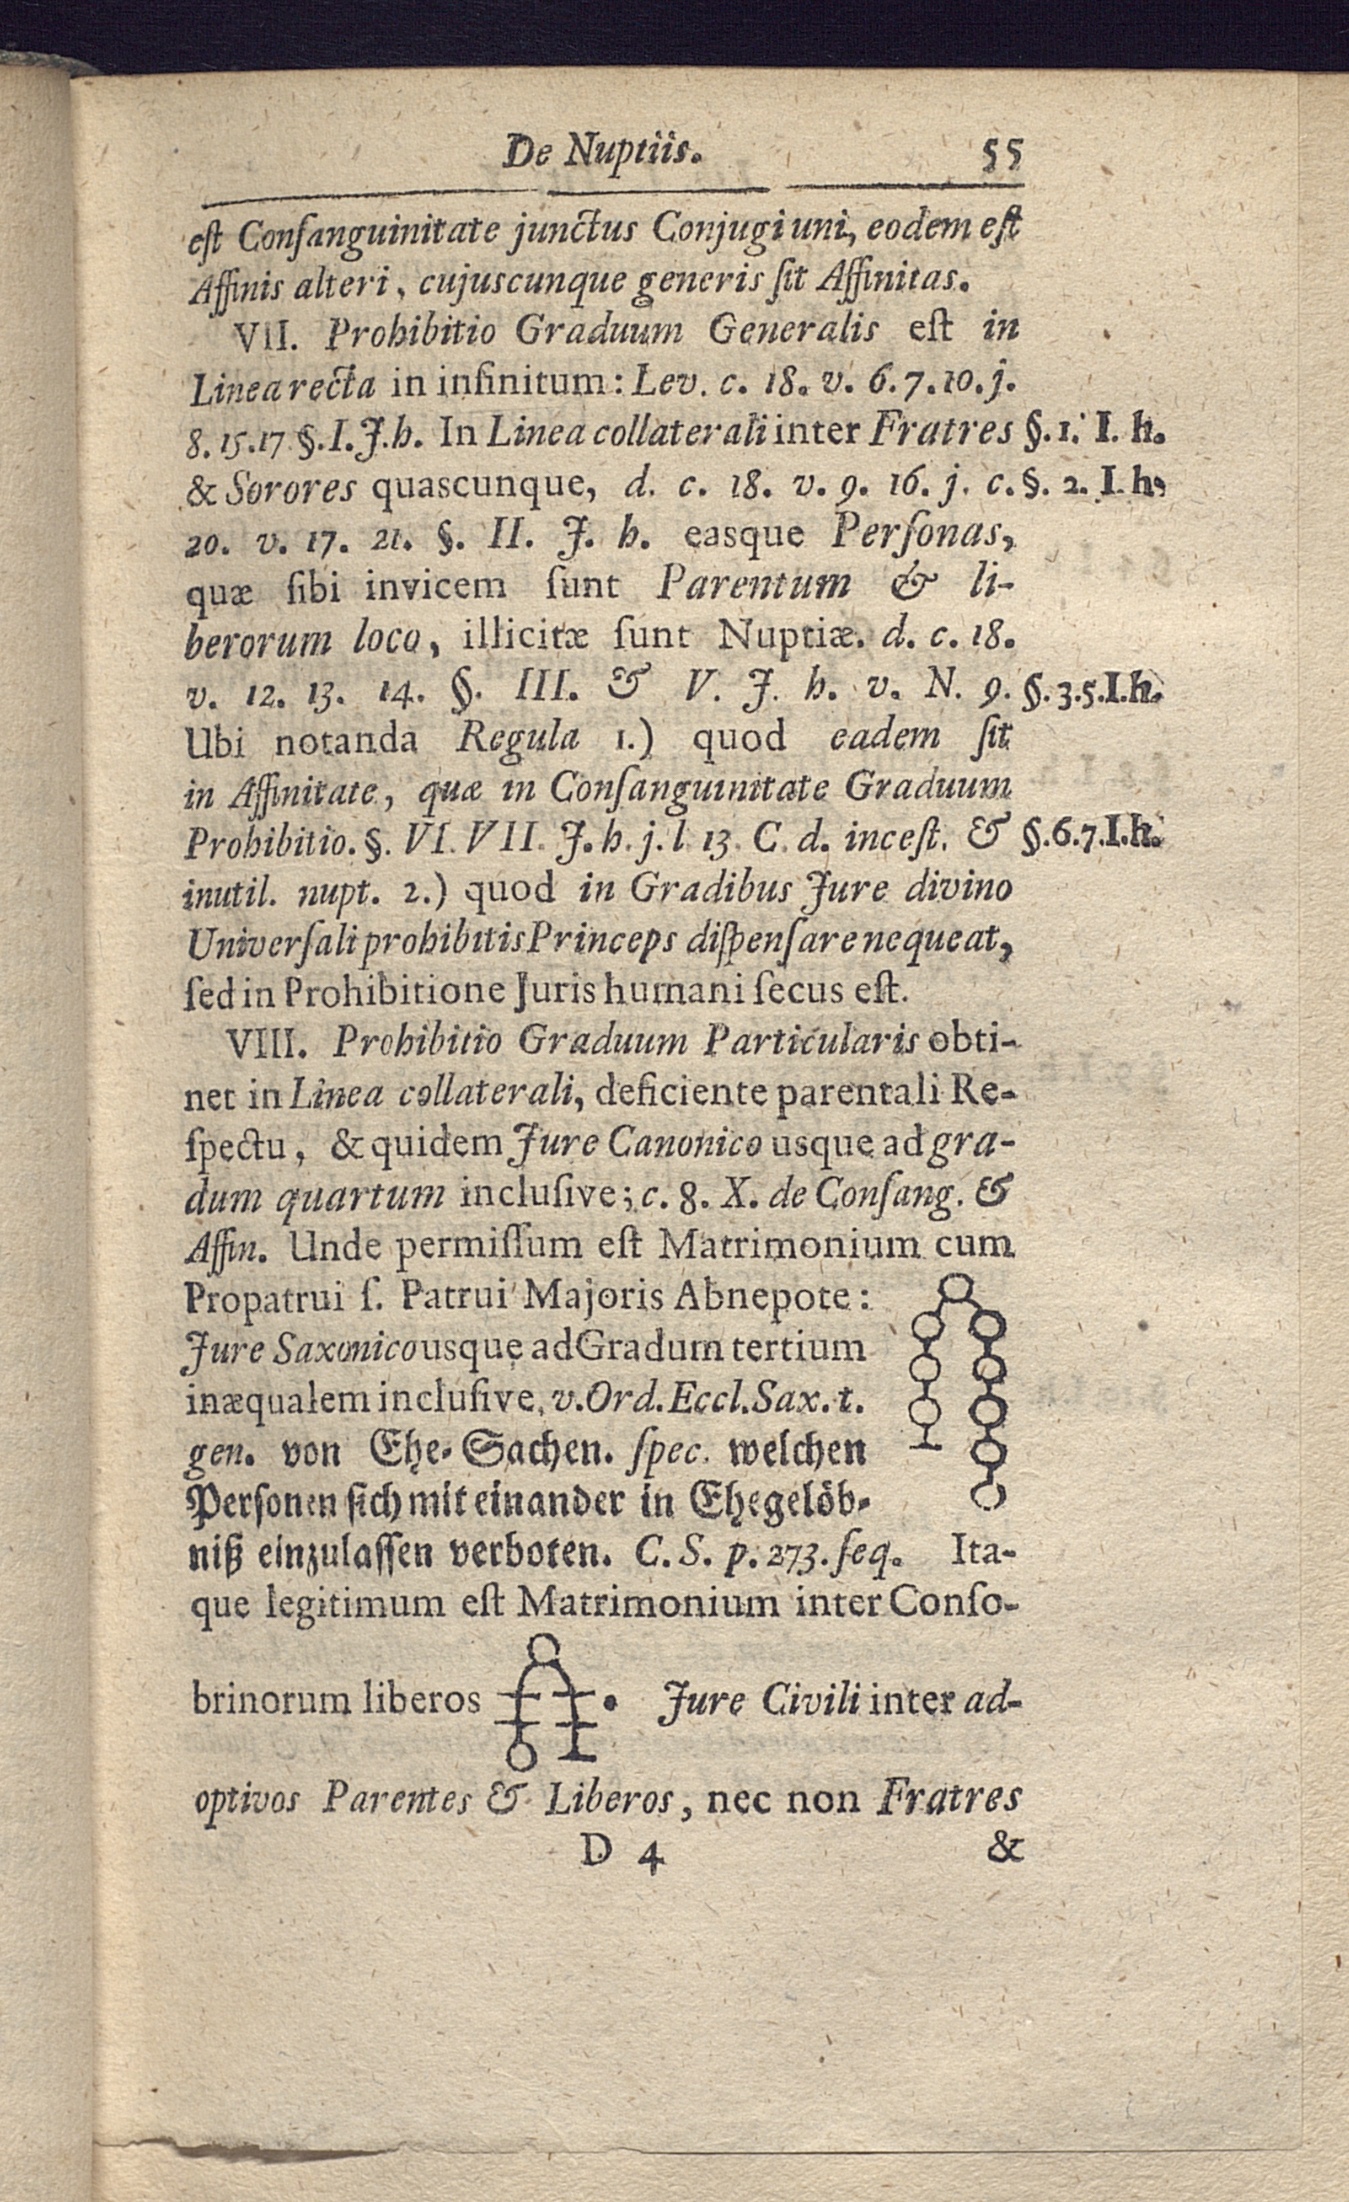 De Nuptiis. 55
eſt Conſanguinitate junctus Conjugi uni, eodem eſt
Affinis alteri, cujuscunque generis ſit Affinitas.
VII. Prohibitio Graduum Generalis eſt in
Linea recta in infinitum: Lev. c. 18. v. 6. 7. 10. j.
8. 15. 17 §. I. J. h. In Linea collaterali inter Fratres §. 1. I. h.
& Sorores quascunque, d. c. 18. v. 9. 16. j. c. §. 2. I. h.
20. v. 17. 21. §. II. J. h. easque Perſonas,
quæ ſibi invicem ſunt Parentum & li-
berorum loco, illicitæ ſunt Nuptiæ. d. c. 18.
v. 12. 13. 14. §. III. & V. J. h. v. N. 9. §. 3. 5. I. h.
Ubi notanda Regula 1.) quod eadem ſit
in Affinitate, quæ in Conſanguinitate Graduum
Prohibitio. §. VI. VII. J. h. j. l. 13. C. d. inceſt. & §. 6. 7. I. h.
inutil. nupt. 2.) quod in Gradibus Jure divino
Univerſali prohibitis Princeps diſpenſare nequeat,
ſed in Prohibitione Juris humani ſecus eſt.
VIII. Prohibitio Graduum Particularis obti-
net in Linea collaterali, deficiente parentali Re-
ſpectu, & quidem Jure Canonico usque ad gra-
dum quartum incluſive; c. 8. X. de Conſang. &
Affin. Unde permiſſum eſt Matrimonium cum
Propatrui ſ. Patrui Majoris Abnepote:
Jure Saxonico usque ad Gradum tertium
inæqualem incluſive, v. Ord. Eccl. Sax. t.
gen. von Ehe-Sachen. ſpec. welchen
Perſonen ſich mit einander in Ehegelöb-
niß einzulaſſen verboten. C. S. p. 273. ſeq. Ita-
que legitimum eſt Matrimonium inter Conſo-
brinorum liberos . Jure Civili inter ad-
optivos Parentes & Liberos, nec non Fratres
D 4 &